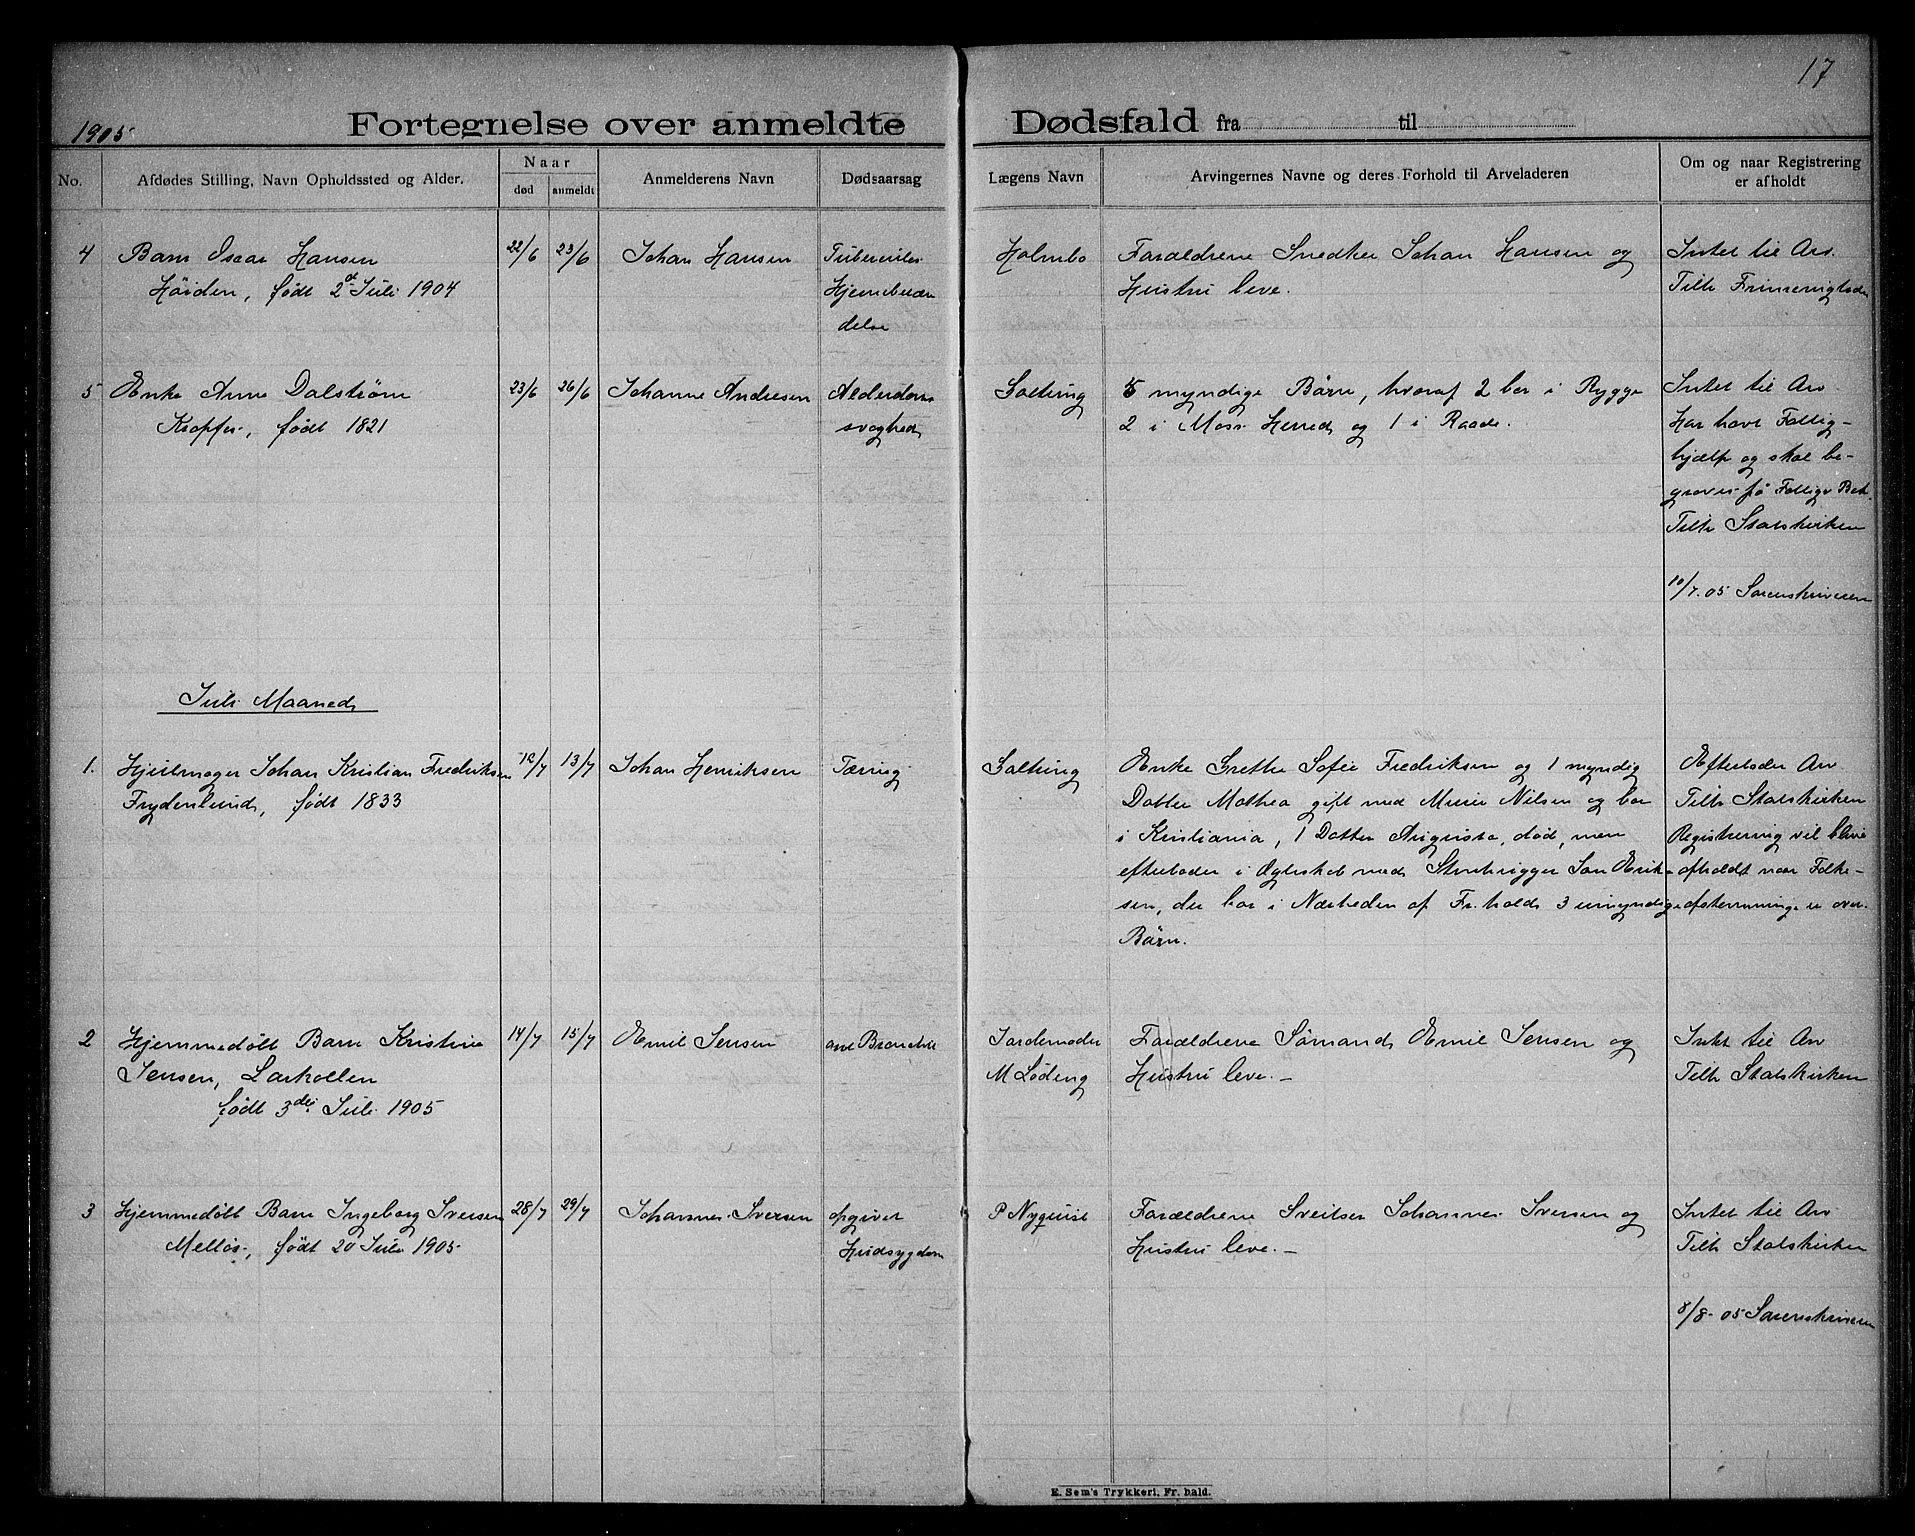 17
1905
Fortegnelse over anmeldte Dødsfald fra til
No.
Afdødes Stilling, Navn Opholdssted og Alder.
Naar
død
anmeldt
Anmelderens Navn
Dødsaarsag
Lægens Navn
Arvingernes Navne og deres Forhold til Arveladeren
Om og naar Registrering
er afholdt
4 Barn Oscar Hansen 22/6 23/6 Johan Hansen
Høiden, født 2 Juli 1904
delse
Holmbo
Forældrene Snedker Johan Hansen og
Hustru leve.
Intet til Arv.
Tilh
5 Enke Anne Dalstrøm 23/6 26/6 Johanne Andresen
født 1821
Alderdoms
svaghed
Soltung
5 myndige Børn, hvoraf 2 bor i Rygge
2 i Moss Herred og 1 i Raade.
Intet til Arv
Har havt Fattig-
hjælp og skal be-
graves på Fattigv Bek.
Tilh Statskirken
10/7.05 Sorenskriveren
Juli Maaned
1. Hjulmager Johan Kristian Fredriksen 12/7 13/7 Johan Henriksen Tæring
Frydenlund, født 1833
Soltung
Enke Grethe Sofie Fredriksen og 1 myndig
Datter Mathea gift med Murer Nilsen og bor
i Kristiania, 1 Datter Augusta, død, men
efterlader i Ægteskab med Stenhugger Erik-
sen, der bor i Nærheden af Fr.hald 3 umyndige
Børn.
Efterlader Arv
Tilh Statskirken
Registrering vil blive
afholdt naar Folke-
afstemninge er over.
2 Hjemmedøbt Barn Kristine 14/7 15/7 Emil Jensen
Jensen, Larkollen
født 3die Juli 1905
Jordemoder
M Løding
Forældrene Sømand Emil Jensen og
Hustru leve.-
Intet til Arv
Tilh Statskirken
3 Hjemmedøbt Barn Ingeborg Iversen 28/7 29/7 Johannes Iversen
Melløs, født 20 Juli 1905
opgivet
Hudsygdom
P Nyquist
Forældrene Sveitser Johannes Iversen og
Hustru leve.-
Intet til Arv
Tilh Statskirken
8/8-05 Sorenskriveren
E. Sem's Trykkeri, Fr. hald.